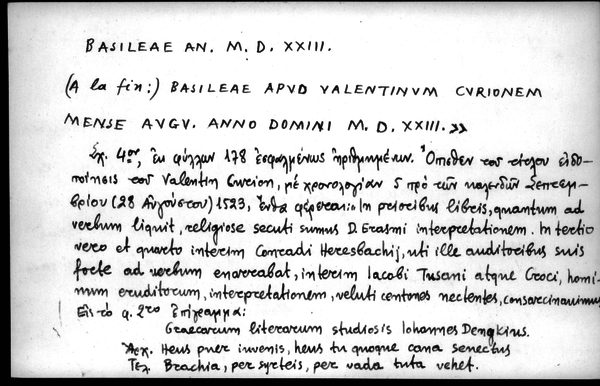 BASILEAE AN. M. D. XXIII.
(A la fin:) BASILEAE APVD VALENTINVM CVRIONEM
MENSE AVGV. ANNO DOMINI M. D. XXIII.»
Σχ. 4ον, ἐκ φύλλων 178 ἐσφαλμένως ἠριθμημένων. Ὄπισθεν τοῦ τίτλου εἰδο-
ποίησις τοῦ Valentin Curion, μὲ χρονολογίαν 5 πρὸ τῶν καλενδῶν Σεπτεμ-
βρίου (28 Αὐγούστου) 1523, ἔνθα φέρεται: In prioribus libris, quantum ad
verbum liquit, religiose secuti sumus D. Erasmi interpretationem. In tertio
vero et quarto interim Conradi Heresbachij, uti ille auditoribus suis
forte ad verbum enarrabat, interim Iacobi Tusani atque Croci, homi-
num eruditorum, interpretationem, veluti centones nectentes, consarcinavimus
Εἰς τὸ φ. 2ro ἐπίγραμμα:
Graecarum literarum studiosis Iohannes Dengkius.
Ἀρχ. Heus puer invenis, heus tu quoque cana senectus
Τελ. Brachia, per syrteis, per vada tuta vehet.